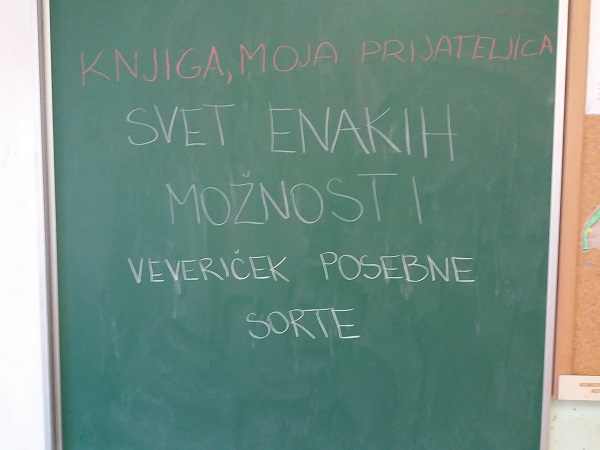 KNJIGA, MOJA PRIJATELJICA
SVET ENAKIH
MOŽNOSTI
VEVERIČEK POSEBNE
SORTE